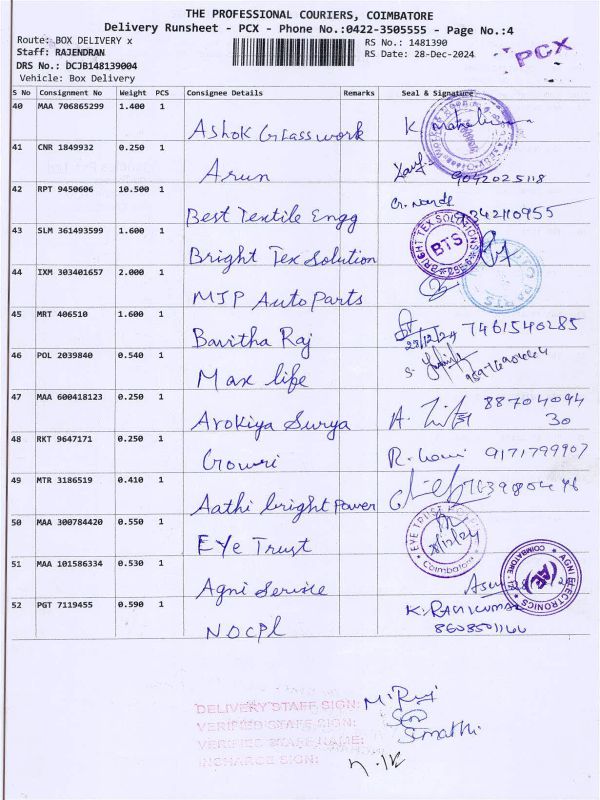 THE PROFESSIONAL COURIERS, COIMBATORE
Delivery Runsheet - PCX - Phone No.:0422-3505555 - Page No.:4
Route: BOX DELIVERY x
RS No.: 1481390
PCX
Staff: RAJENDRAN
RS Date: 28-Dec-2024
DRS No.: DCJB148139004
Vehicle: Box Delivery
S No Consignment No Weight PCS Consignee Details Remarks Seal & Signature
40 MAA 706865299 1.400 1 Ashok Glasswork
41 CNR 1849932 0.250 1 Arun 9042025118
42 RPT 9450606 10.500 1 Best Textile Engg 9342110955
43 SLM 361493599 1.600 1 Bright Tex Solution BRIGHT TEX SOLUTIONS BTS
44 IXM 303401657 2.000 1 MJP AutoParts
45 MRT 406510 1.600 1 Bavitha Raj 28/12/24 7461540285
46 POL 2039840 0.540 1 Max life
47 MAA 600418123 0.250 1 Arokiya Surya 88704094
30
48 RKT 9647171 0.250 1 Gowri 9171799907
49 MTR 3186519 0.410 1 Aathi bright Power
50 MAA 300784420 0.550 1 EYe Trust EYE TRUST Coimbatore
51 MAA 101586334 0.530 1 Agni Service AGNI ELECTRONICS COIMBATORE AE
52 PGT 7119455 0.590 1 NOCPL K. RAVIKUMAR
8608501166
DELIVERY STAFF SIGN:
VERIFIED STAFF SIGN:
VERIFIED STAFF NAME: Sumathi
INCHARGE SIGN: